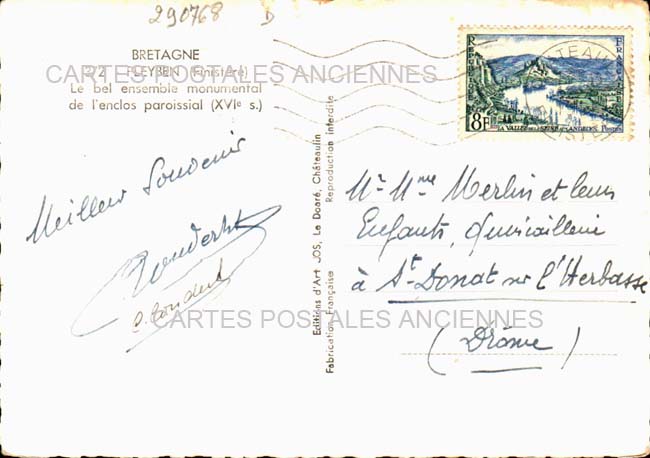 290768 D
BRETAGNE
272 PLEYBEN (Finistère)
Le bel ensemble monumental
de l'enclos paroissial (XVIe s.)
CARTES POSTALES ANCIENNES
Meilleur Souvenir
Editions d'Art JOS, Le Doaré, Châteaulin
Reproduction interdite
Fabrication Française
REPUBLIQUE
FRANÇAISE
8F
LA VALLÉE DE LA SEINE AUX ANDELYS
Postes
CHATEAU
Mr Mme Merlin et leurs
Enfants, Quincaillerie
à St-Donat sur l'Herbasse
(Drôme)
CARTES POSTALES ANCIENNES